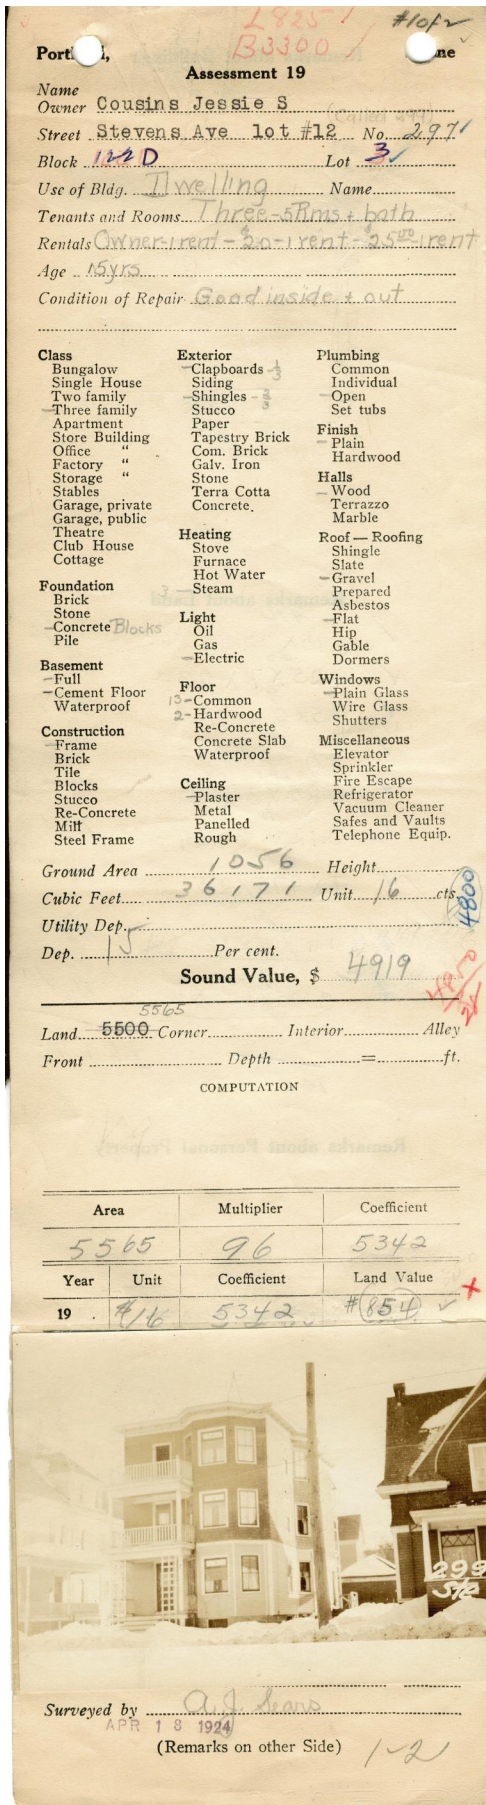 L 825
B3300
#1 of 2
Portland, Maine
Assessment 19
Name
Owner Cousins Jessie S
(Called 299)
Street Stevens Ave lot #12 No. 297
Block 122 D Lot 3
Use of Bldg. Dwelling Name
Tenants and Rooms Three-5Rms + bath
Rentals Owner-1rent-$20-1rent-25.00-1rent
Age 15yrs
Condition of Repair Good inside + out
Class
Bungalow
Single House
Two family
Three family
Apartment
Store Building
Office "
Factory "
Storage "
Stables
Garage, private
Garage, public
Theatre
Club House
Cottage
Foundation
Brick
Stone
Concrete Blocks
Pile
Basement
Full
Cement Floor
Waterproof
Construction
Frame
Brick
Tile
Blocks
Stucco
Re-Concrete
Mill
Steel Frame
Exterior
Clapboards - 1/3
Siding
Shingles - 2/3
Stucco
Paper
Tapestry Brick
Com. Brick
Galv. Iron
Stone
Terra Cotta
Concrete.
Heating
Stove
Furnace
Hot Water
3 - Steam
Light
Oil
Gas
Electric
Floor
13 - Common
2 - Hardwood
Re-Concrete
Concrete Slab
Waterproof
Ceiling
Plaster
Metal
Panelled
Rough
Plumbing
Common
Individual
Open
Set tubs
Finish
Plain
Hardwood
Halls
Wood
Terrazzo
Marble
Roof — Roofing
Shingle
Slate
Gravel
Prepared
Asbestos
Flat
Hip
Gable
Dormers
Windows
Plain Glass
Wire Glass
Shutters
Miscellaneous
Elevator
Sprinkler
Fire Escape
Refrigerator
Vacuum Cleaner
Safes and Vaults
Telephone Equip.
Ground Area 1056 Height
Cubic Feet 36171 Unit 16 cts.
4800
Utility Dep.
Dep. 15 Per cent.
Sound Value, $ 4919
5565
Land 5500 Corner Interior Alley
Front Depth = ft.
COMPUTATION
Area Multiplier Coefficient
5565 96 5342
Year Unit Coefficient Land Value
19 $/16 5342 #854
299
Ste
Surveyed by A.J. Sears
APR 18 1924
(Remarks on other Side) 1-2